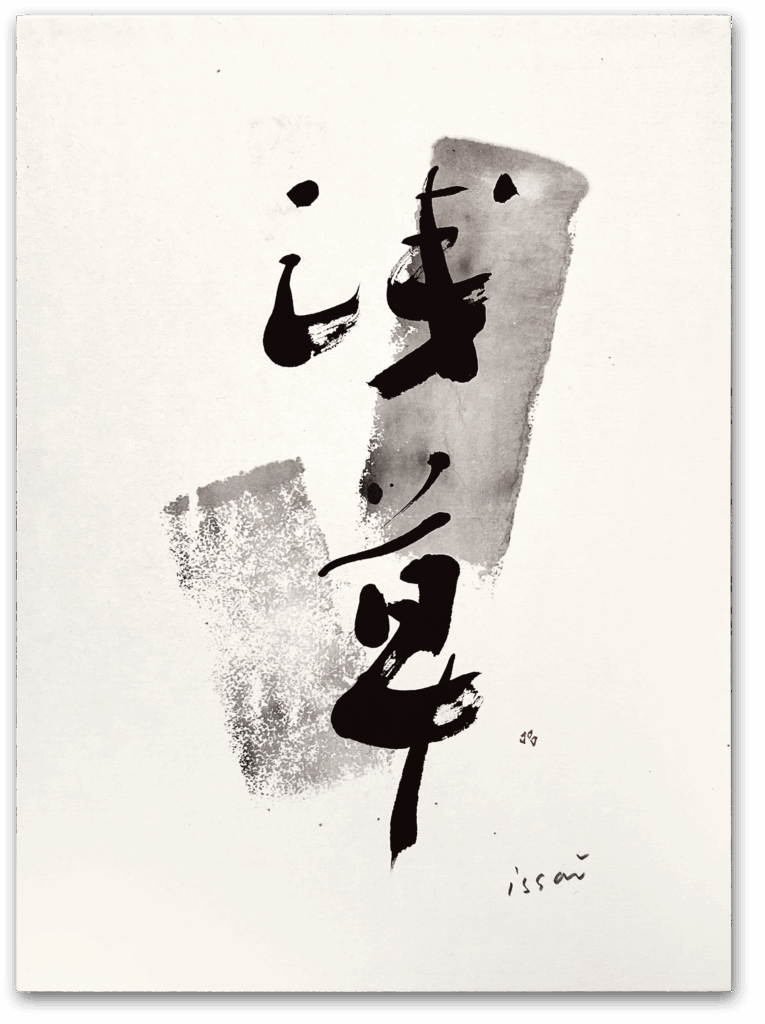 浅草
issai